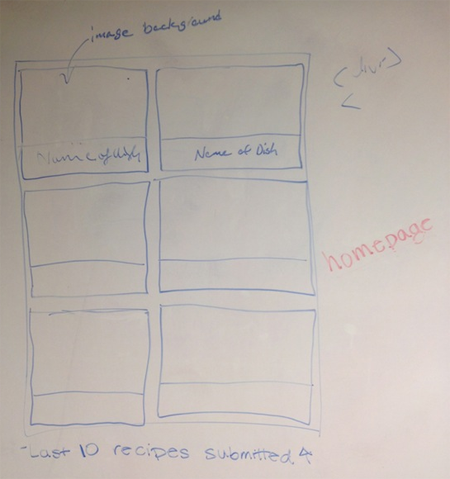 image background
Name of Dish
Name of Dish
homepage
-Last 10 recipes submitted